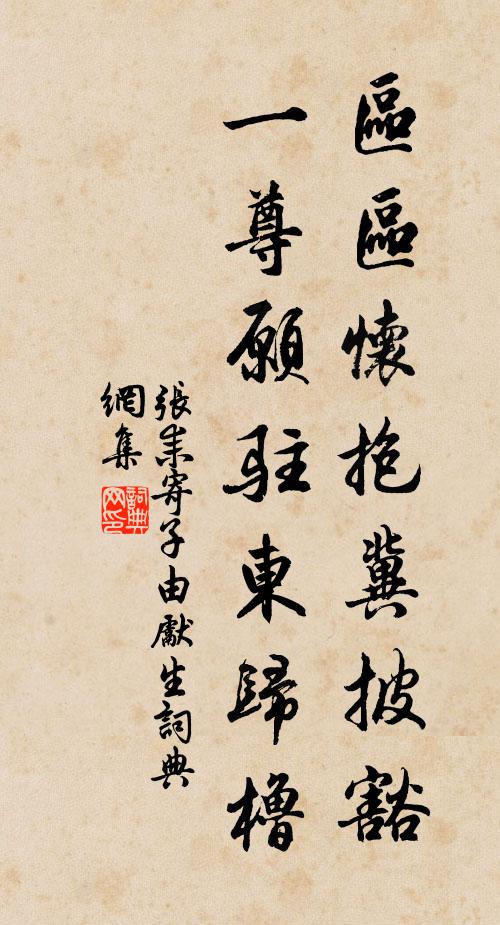 區區懷抱冀披豁
一尊願駐東歸櫓
張耒寄子由獻生詞典
網集
詞典網印